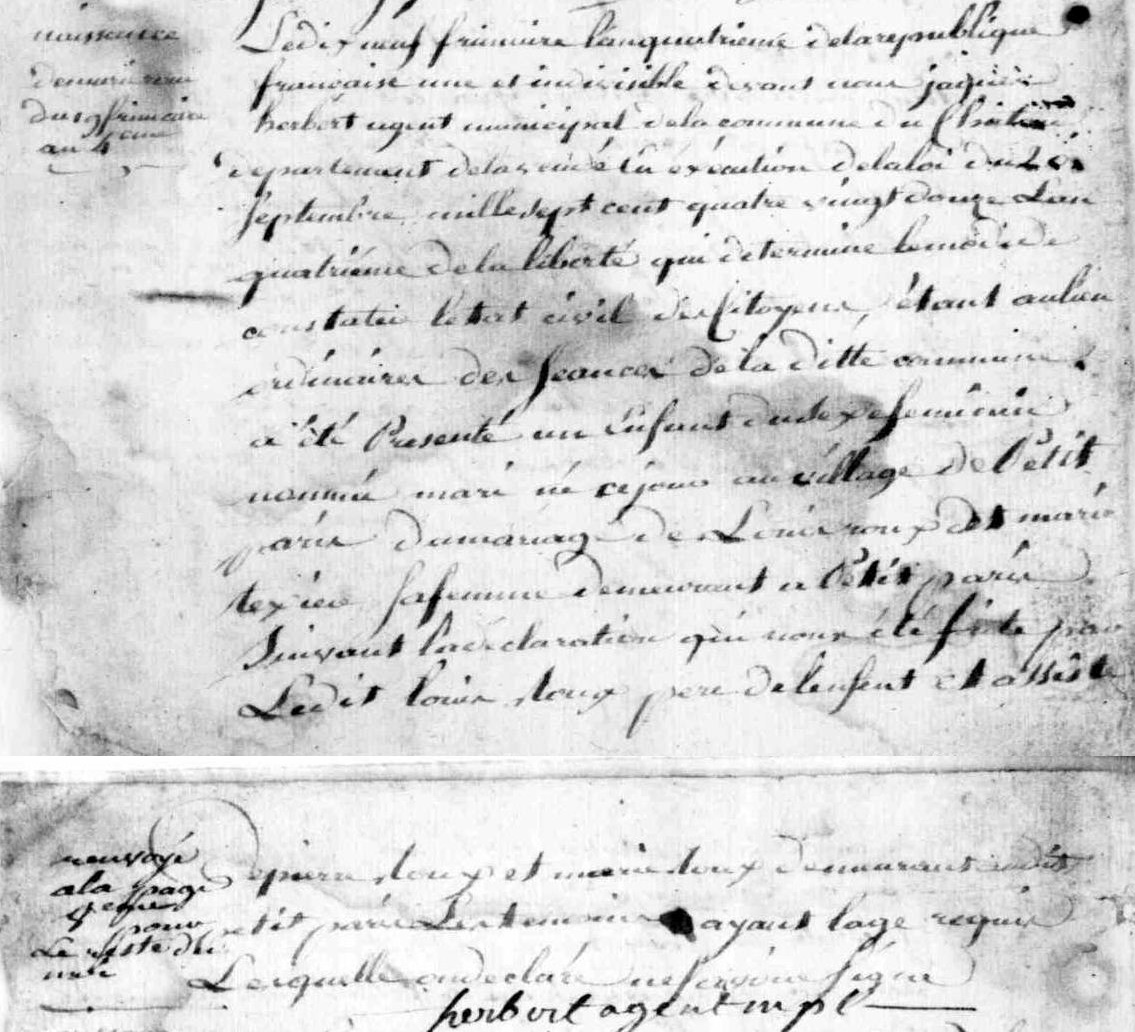 naissance
de marie roux
du 19 frimaire
an 4 eme
Le dix neuf frimaire lan quatrieme de la republique
francaise une et indivisible devant nous jaques
herbert agent municipal de la commune du
departement de la vendé En exécution de la loi du 20
septembre mille sept cent quatre vingt douze Lan
quatriéme de la liberté qui determine le mode de
constater letat civil des Citoyens, étant au lieu
ordinaires des seances de la ditte commune
a été Presenté un Enfant du sexe feminin
nommée marie né ce jour au village de Pétit
paris du mariage de Louis roux et marie
texier sa femme demeurant a Pétit paris
Suivant la déclaration qui nous été faite par
Ledit louis Roux pere de lenfent et assisté
renvoyé
a la page
4 eme
pour
Le reste du
né
de pierre Roux et marie Roux demeurant audit
petit paris Les temoins ayant lage requis
Lesquelle on declaré ne savoire signé
herbert agent mpl